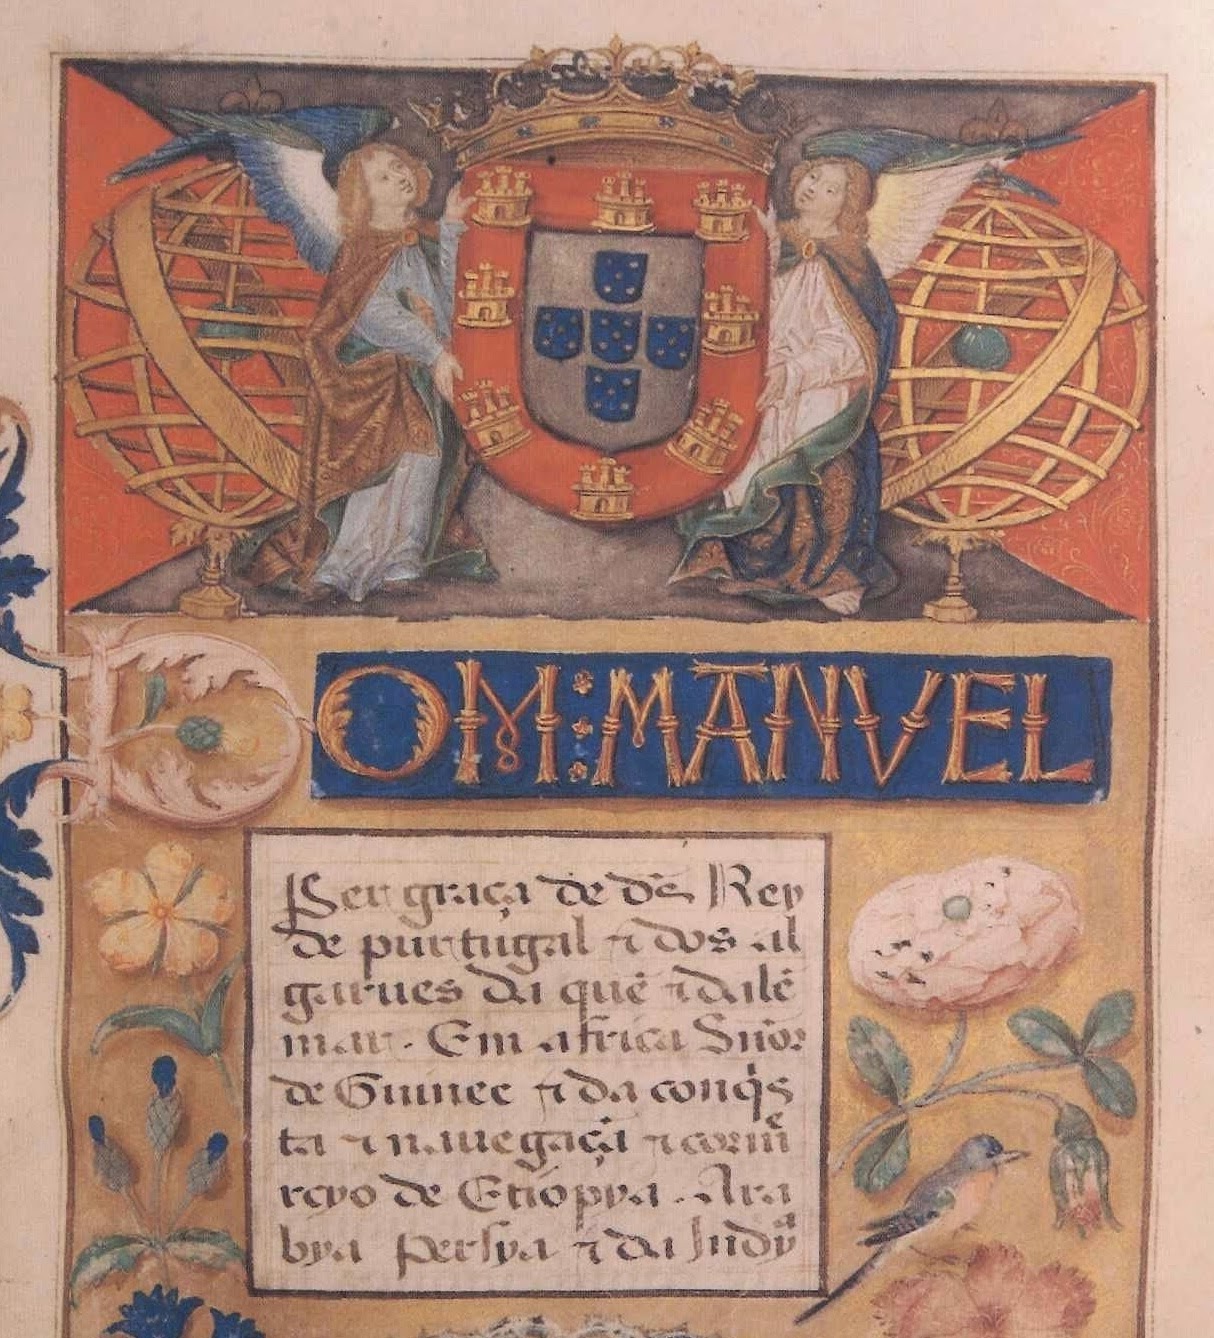 DOM : MANVEL
Per graça de ds̃ Rey
de purtugal ⁊ dos al
garues da quẽ ⁊ dalẽ
mar. Em africa Sñor
de Guinee ⁊ da conq̃s
ta ⁊ nauegaçã ⁊ com̃
rcyo de Etiopya. Ara
bya persya ⁊ da Jndya